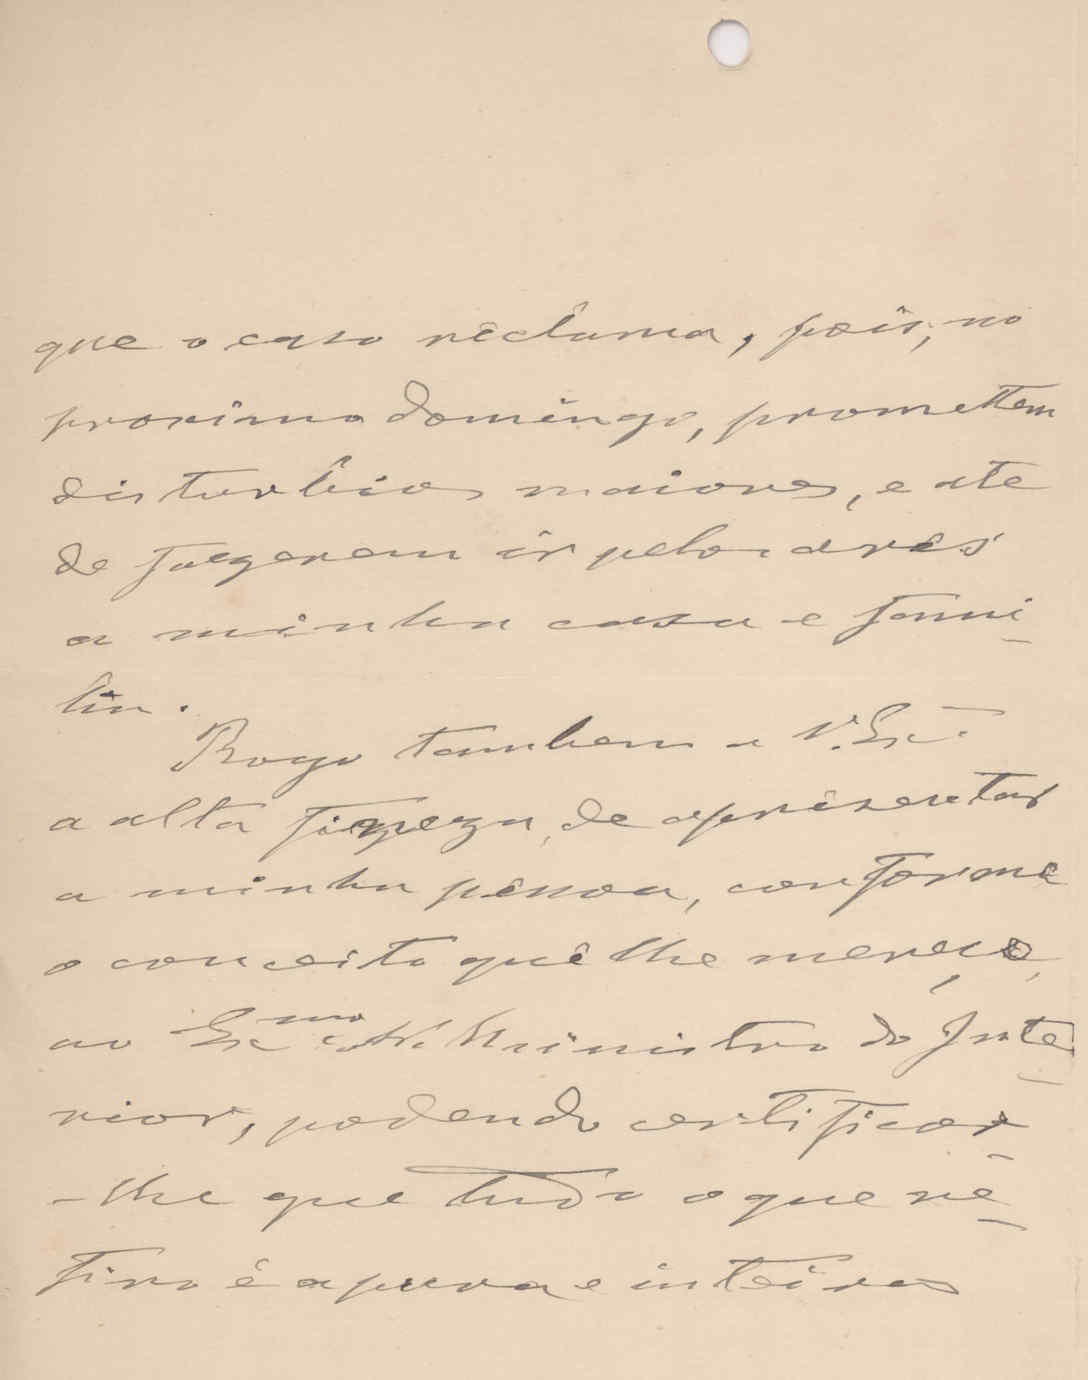 que o caso reclama, pois, no
proximo domingo, promettem
disturbios maiores, e até
de fazerem ir pelos ares
a minha casa e fami-
lia.
Rogo tambem a V. Exª
a alta fineza, de apresentar
a minha pessoa, conforme
o conceito que lhe mereço,
ao Exmo Sr. Ministro do Inte-
rior, podendo certificar-
-lhe que tudo o que re-
firo é a pura e inteira